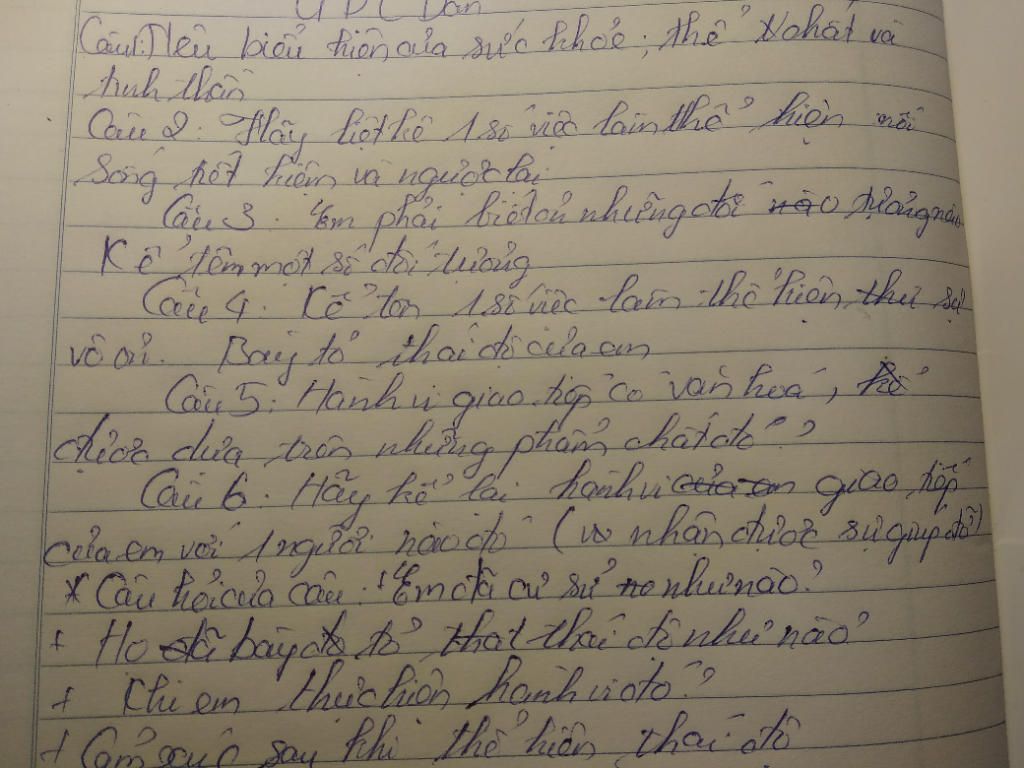 GDCDân
Câu1: Nêu biểu hiện của sức khỏe; thể chất và
tinh thần
Câu 2: Hãy liệt kê 1 số việc làm thể hiện nối
sống tiết kiệm và ngược lại
Câu 3. Em phải biết ơn những đối tượng nào
Kể tên một số đối tượng
Câu 4. Kể tên 1 số việc làm thể hiện thư sự
vô ơn. Bày tỏ thái độ của em
Câu 5: Hành vi giao tiếp có văn hoá,
được dựa trên những phẩm chất đó?
Câu 6. Hãy kể lại hành vi giao tiếp
của em với 1 người nào đó (nhận được sự giúp đỡ)
* Câu hỏi của câu: Em đã cư sử như nào?
+ Họ đã bày tỏ thái độ như nào?
+ Khi em thực hiện hành vi đó?
+ Cảm xúc sau khi thể hiện thái độ